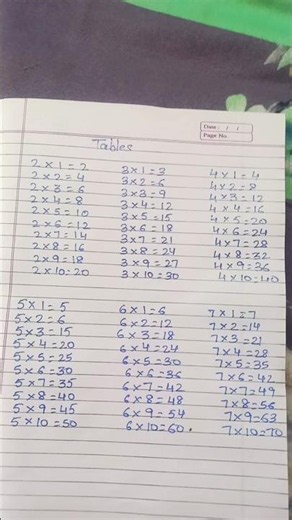 Date : / /
Page No.
Tables
2 × 1 = 2
2 × 2 = 4
2 × 3 = 6
2 × 4 = 8
2 × 5 = 10
2 × 6 = 12
2 × 7 = 14
2 × 8 = 16
2 × 9 = 18
2 × 10 = 20
3 × 1 = 3
3 × 2 = 6
3 × 3 = 9
3 × 4 = 12
3 × 5 = 15
3 × 6 = 18
3 × 7 = 21
3 × 8 = 24
3 × 9 = 27
3 × 10 = 30
4 × 1 = 4
4 × 2 = 8
4 × 3 = 12
4 × 4 = 16
4 × 5 = 20
4 × 6 = 24
4 × 7 = 28
4 × 8 = 32
4 × 9 = 36
4 × 10 = 40
5 × 1 = 5
5 × 2 = 6
5 × 3 = 15
5 × 4 = 20
5 × 5 = 25
5 × 6 = 30
5 × 7 = 35
5 × 8 = 40
5 × 9 = 45
5 × 10 = 50
6 × 1 = 6
6 × 2 = 12
6 × 3 = 18
6 × 4 = 24
6 × 5 = 30
6 × 6 = 36
6 × 7 = 42
6 × 8 = 48
6 × 9 = 54
6 × 10 = 60.
7 × 1 = 7
7 × 2 = 14
7 × 3 = 21
7 × 4 = 28
7 × 5 = 35
7 × 6 = 42
7 × 7 = 49
7 × 8 = 56
7 × 9 = 63
7 × 10 = 70